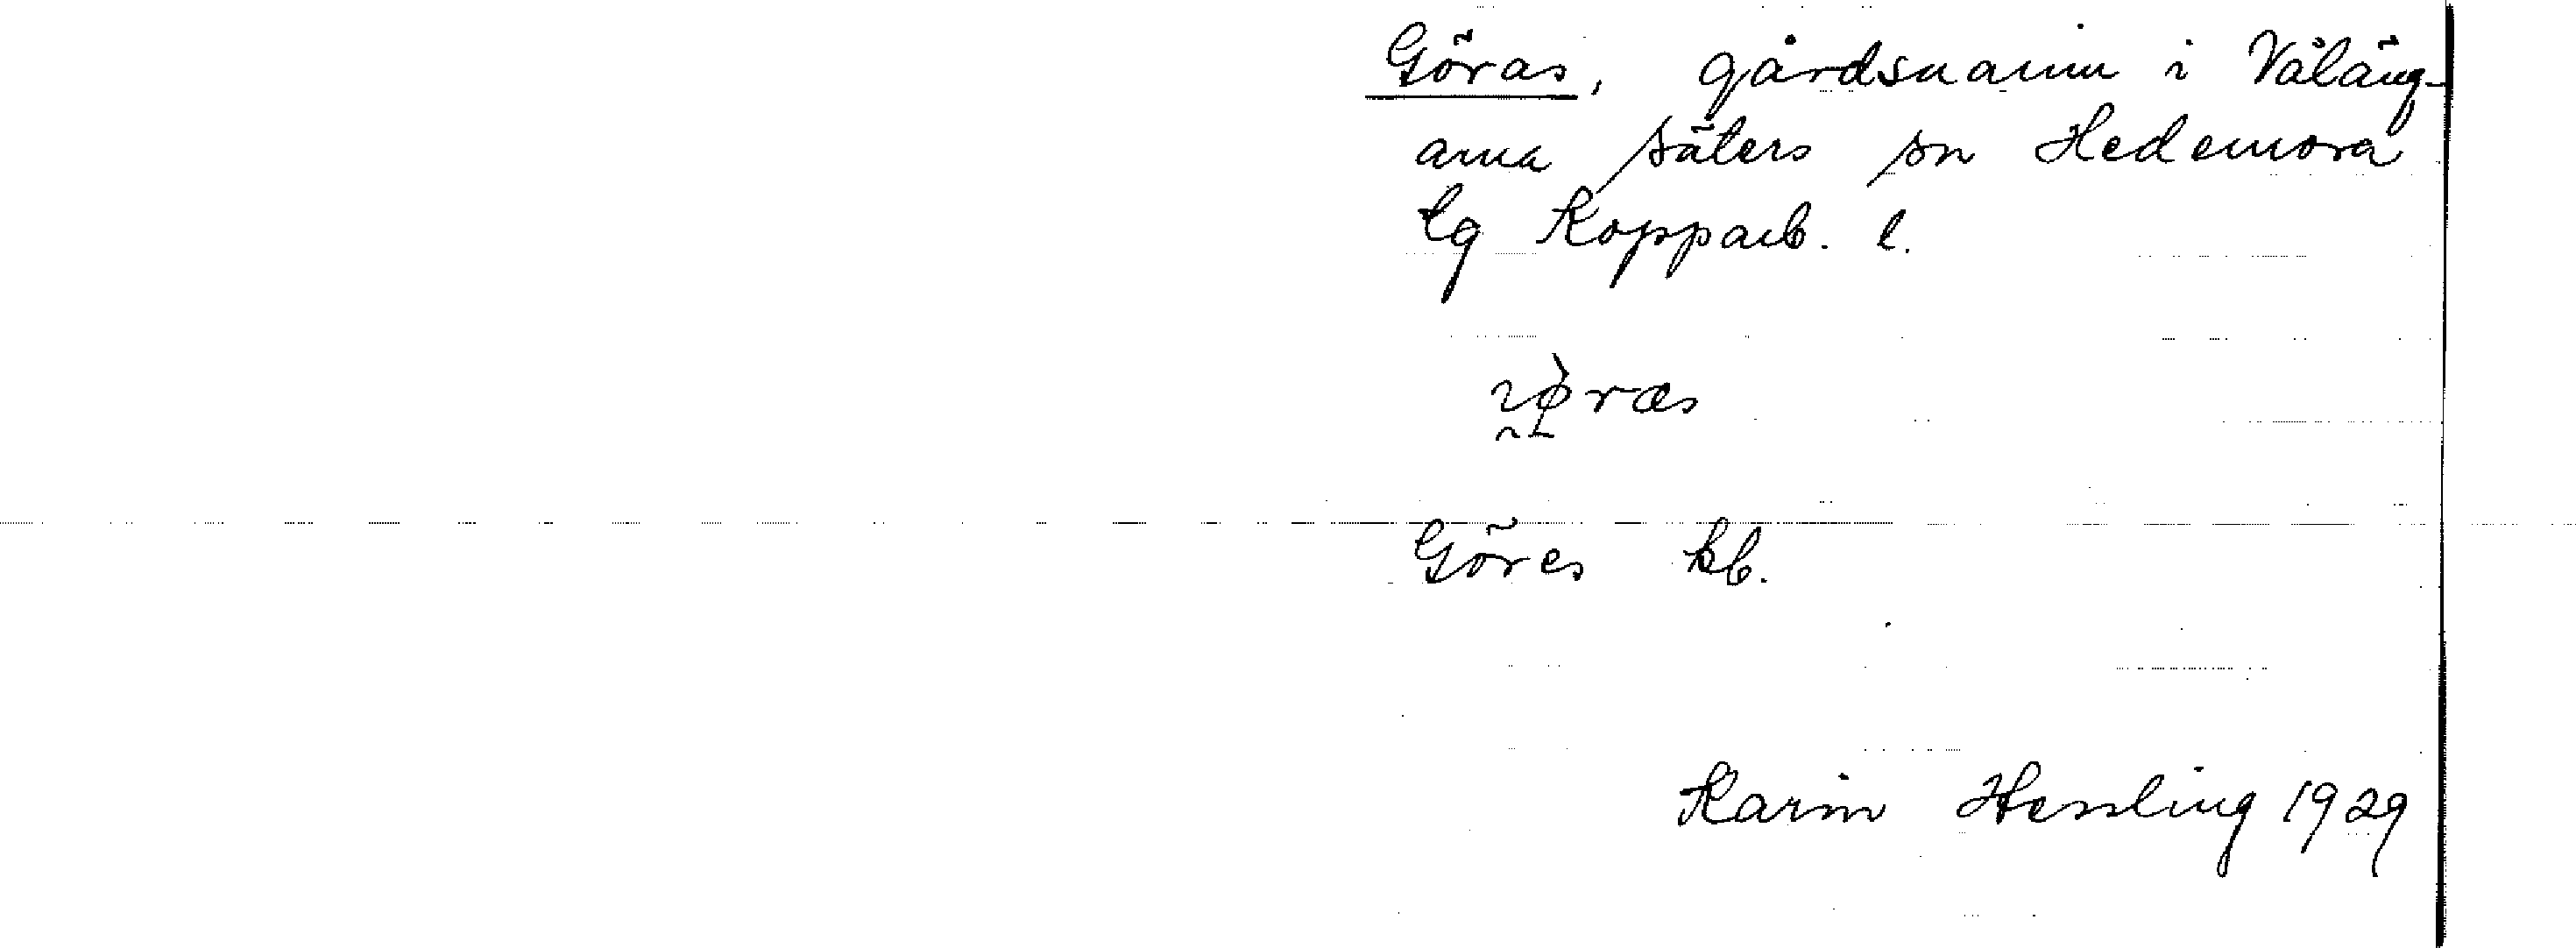 Göras, gårdsnamn i Våläng-
arna Säters sn Hedemora
tg Kopparb. l.
Göres kb.
Karin Hessling 1929